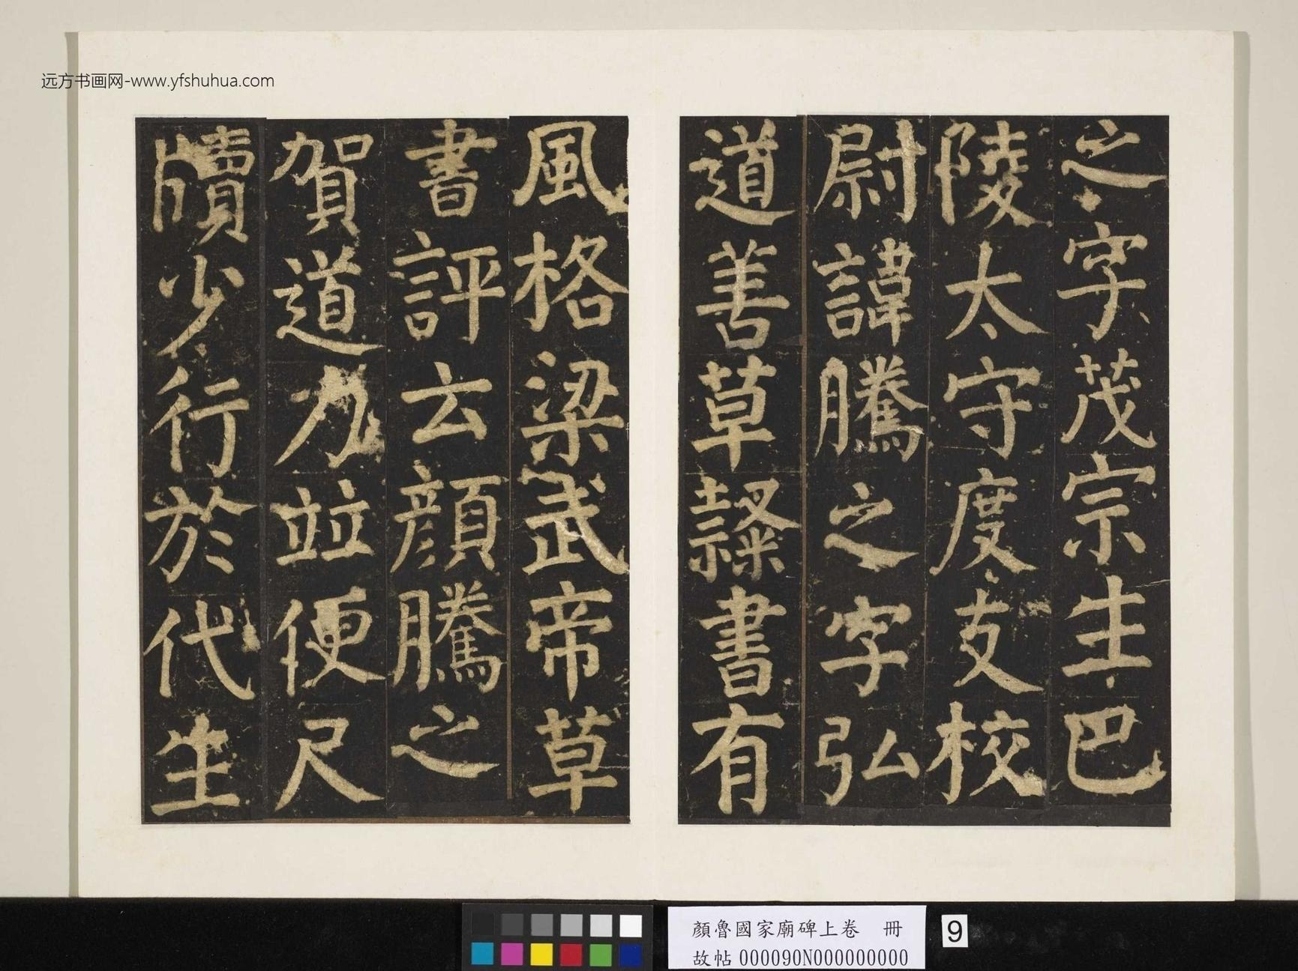 远方书画网-www.yfshuhua.com
之字茂宗生巴
陵太守度支校
尉諱騰之字弘
道善草隸書有
風格梁武帝草
書評云顏騰之
賀道力並便尺
牘少行於代生
顏魯國家廟碑上卷 冊
故帖000090N000000000
9